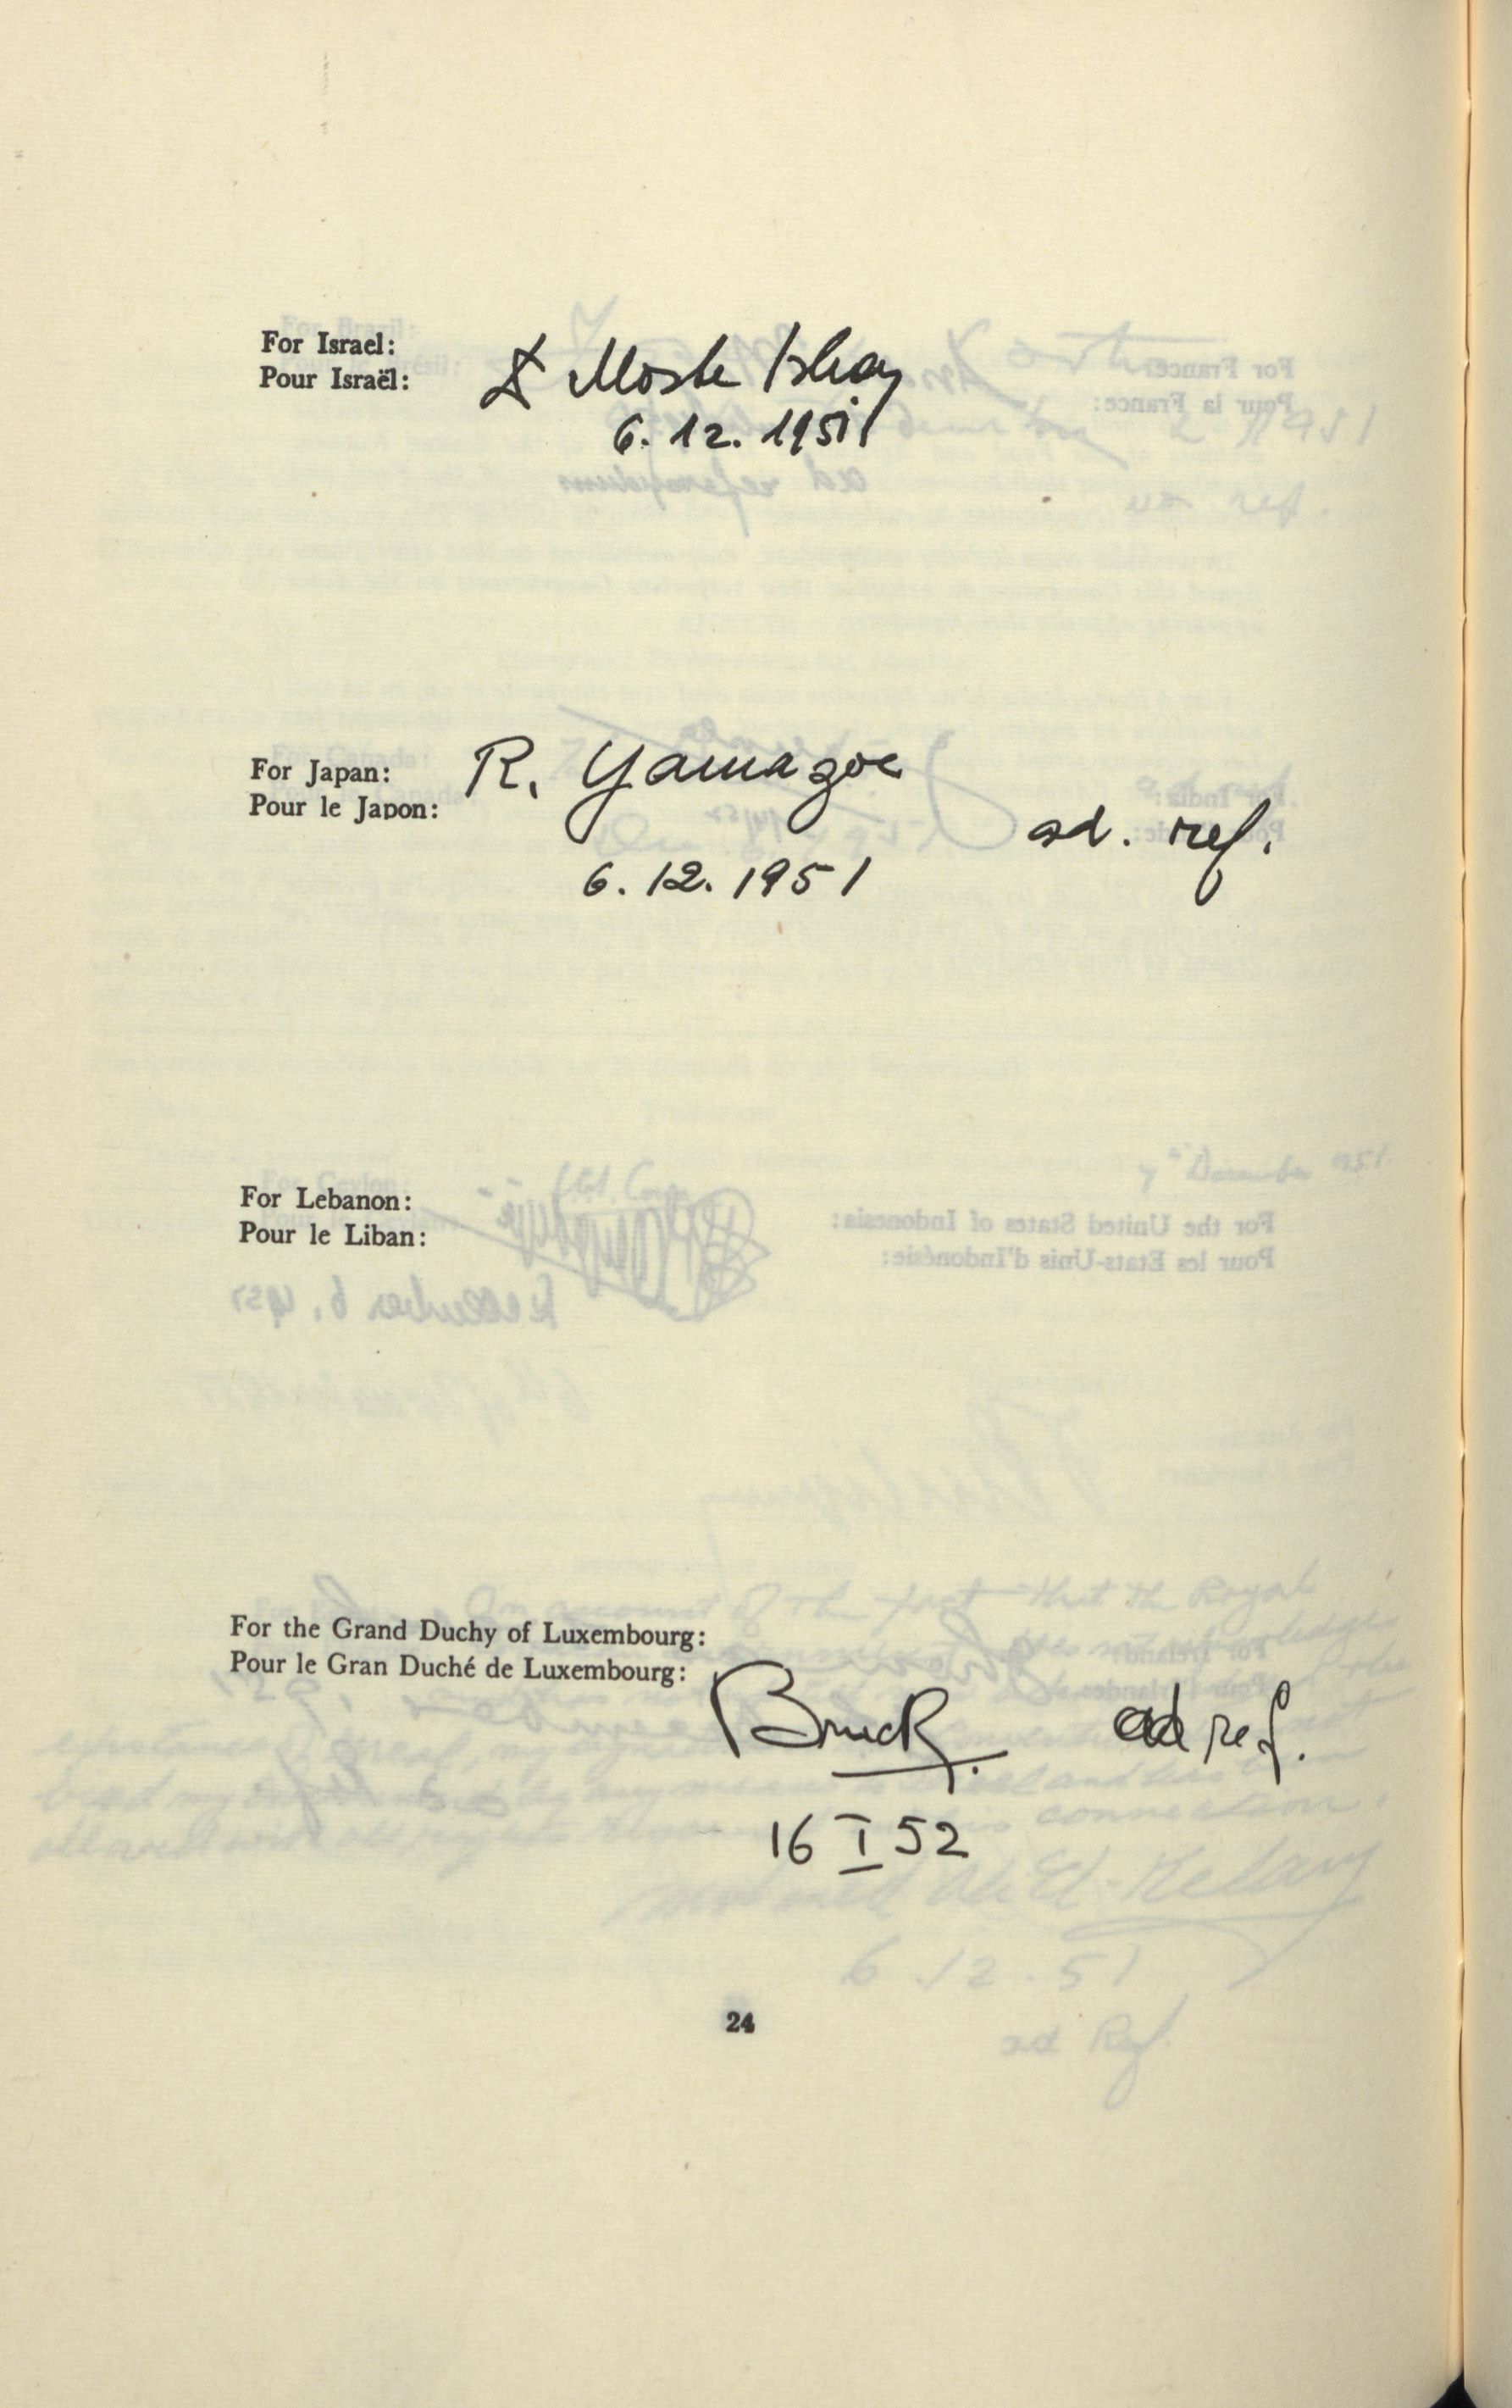 For Israel:
Pour Israël:
Moshe Ishay
6. 12. 1951
For Japan:
Pour le Japon:
R. Yamazoe
ad. ref.
6. 12. 1951
For Lebanon:
Pour le Liban:
For the Grand Duchy of Luxembourg:
Pour le Gran Duché de Luxembourg:
Bruck
ad ref.
16 I 52
24